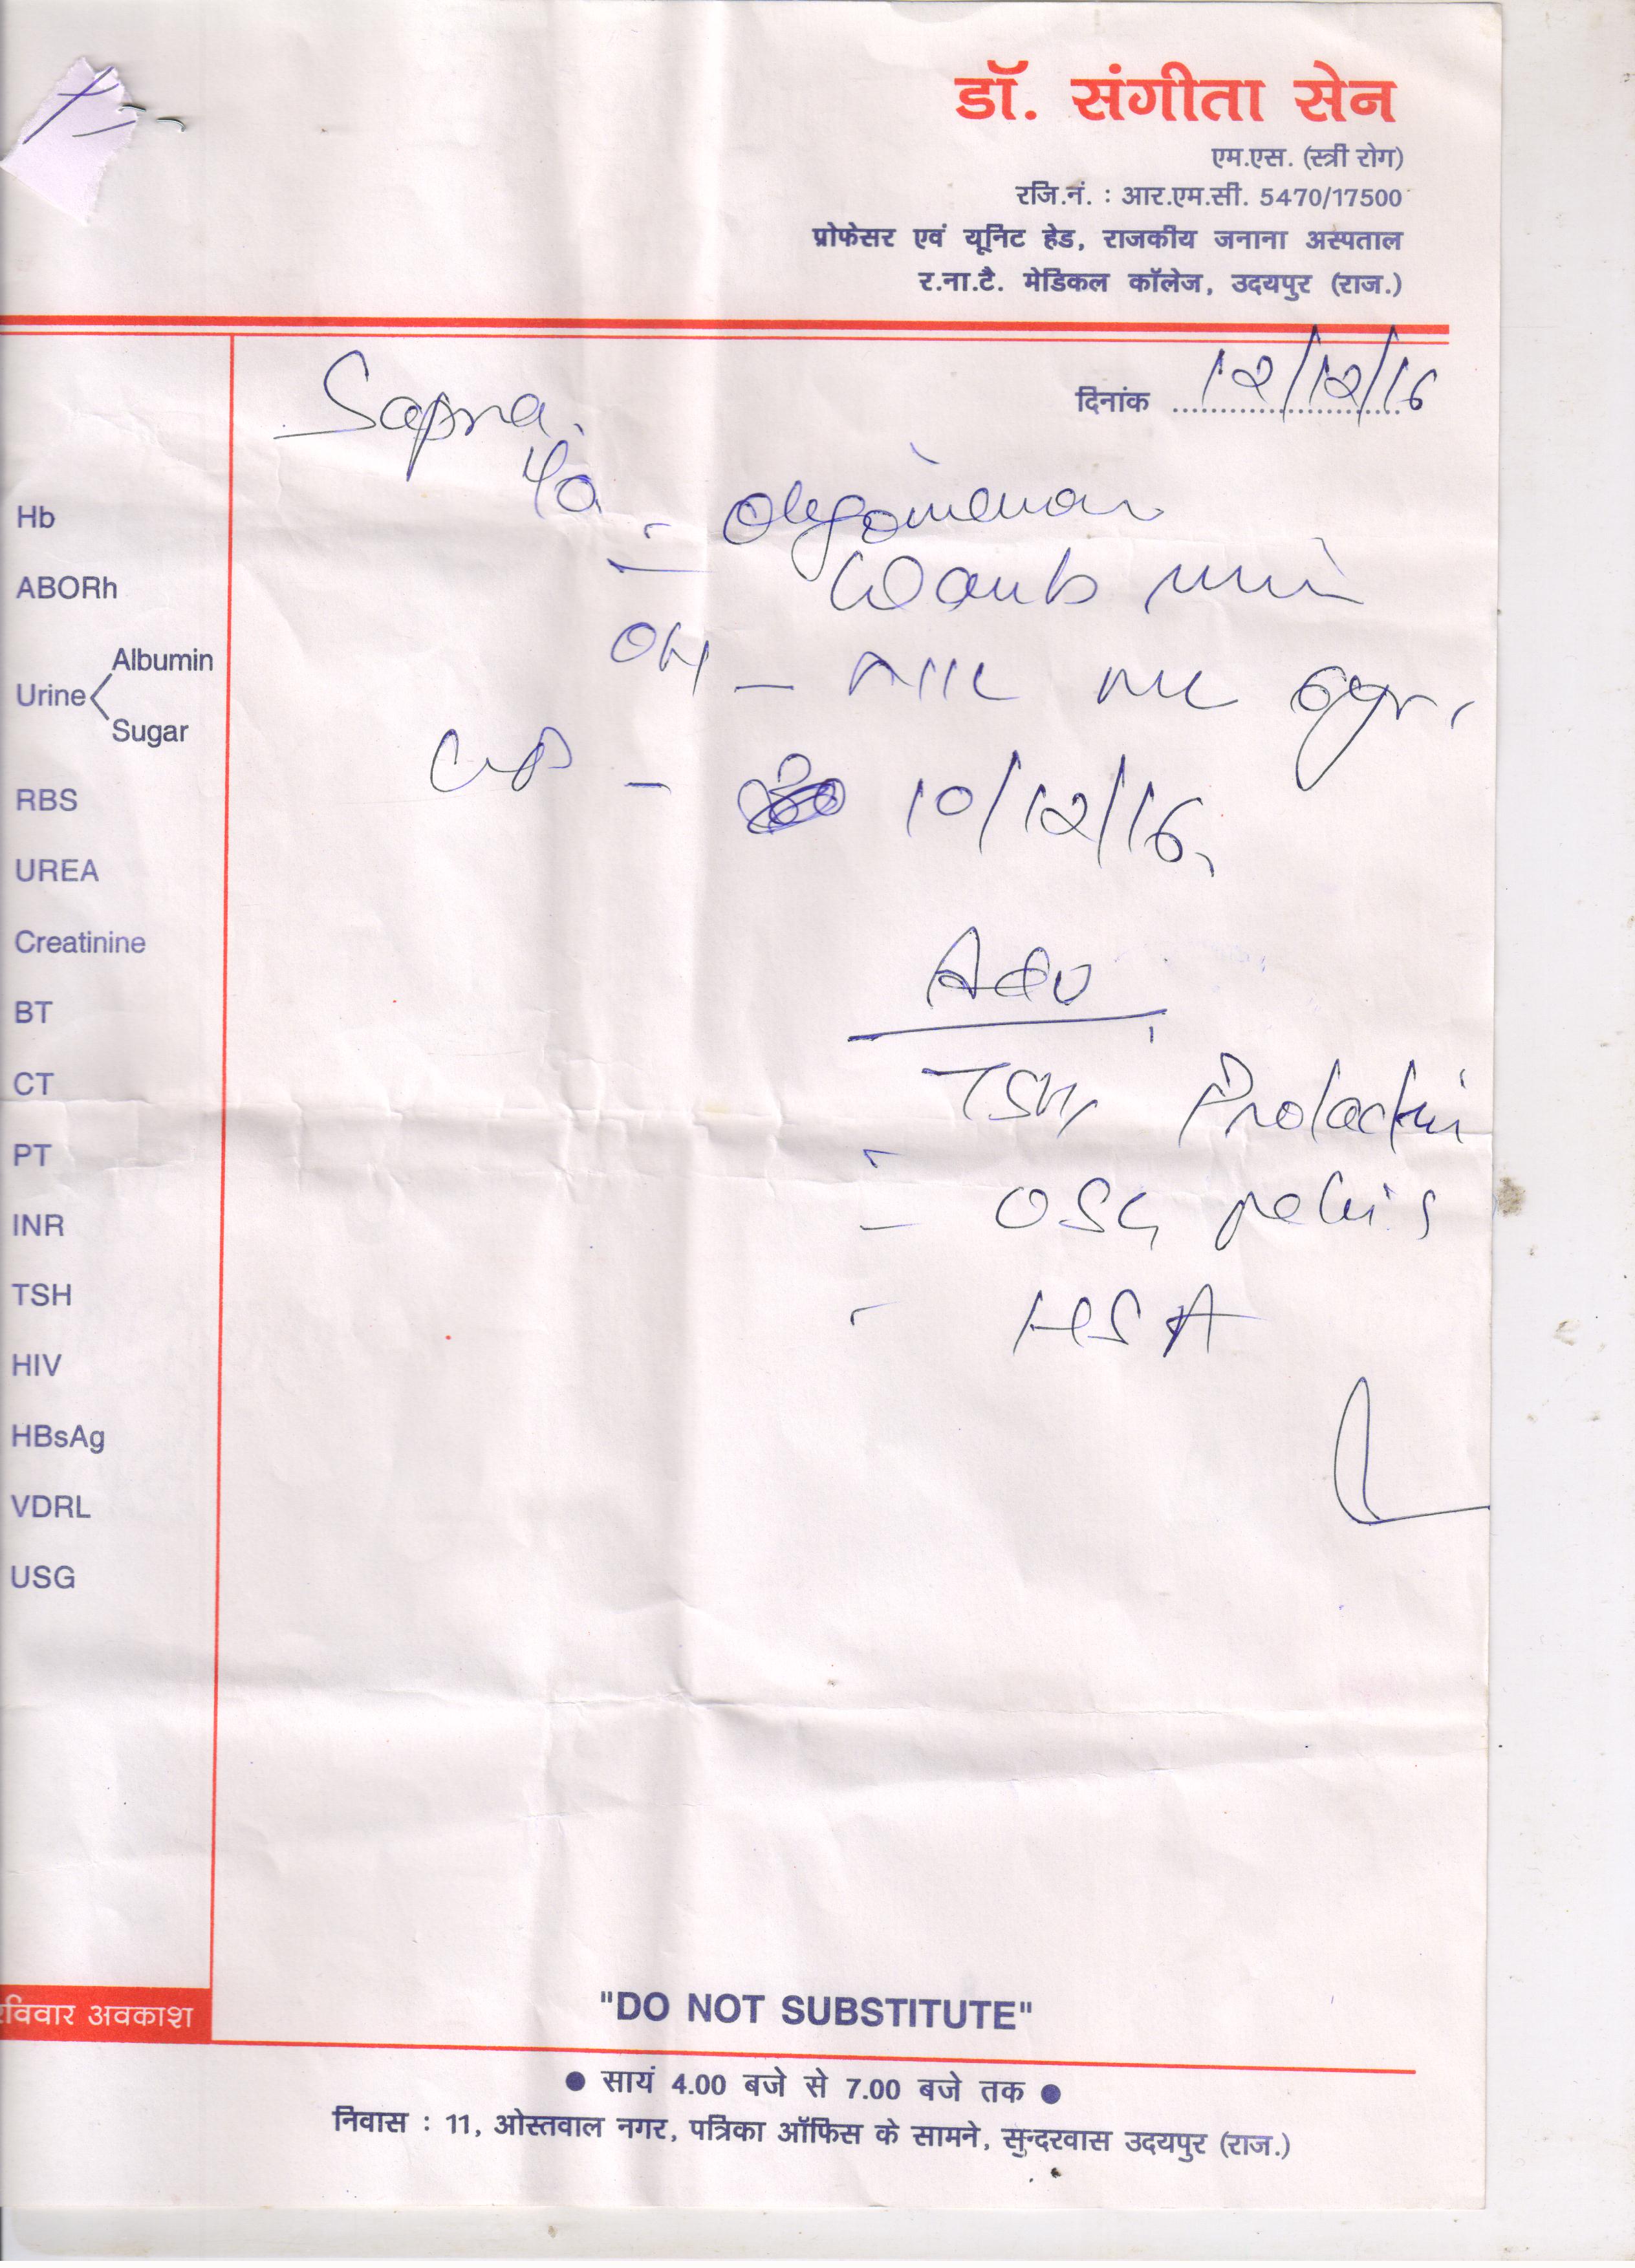 डॉ. संगीता सेन
एम.एस. (स्त्री रोग)
रजि.नं. : आर.एम.सी. 5470/17500
प्रोफेसर एवं यूनिट हेड, राजकीय जनाना अस्पताल
र.ना.टै. मेडिकल कॉलेज, उदयपुर (राज.)
दिनांक 12/12/16
Sapna
OH -
- 10/12/16
Adv
TSH, Prolactin
- USG pelvis
- HSA
Hb
ABORh
Albumin
Urine
Sugar
RBS
UREA
Creatinine
BT
CT
PT
INR
TSH
HIV
HBsAg
VDRL
USG
रविवार अवकाश
"DO NOT SUBSTITUTE"
● सायं 4.00 बजे से 7.00 बजे तक ●
निवास : 11, ओस्तवाल नगर, पत्रिका ऑफिस के सामने, सुन्दरवास उदयपुर (राज.)